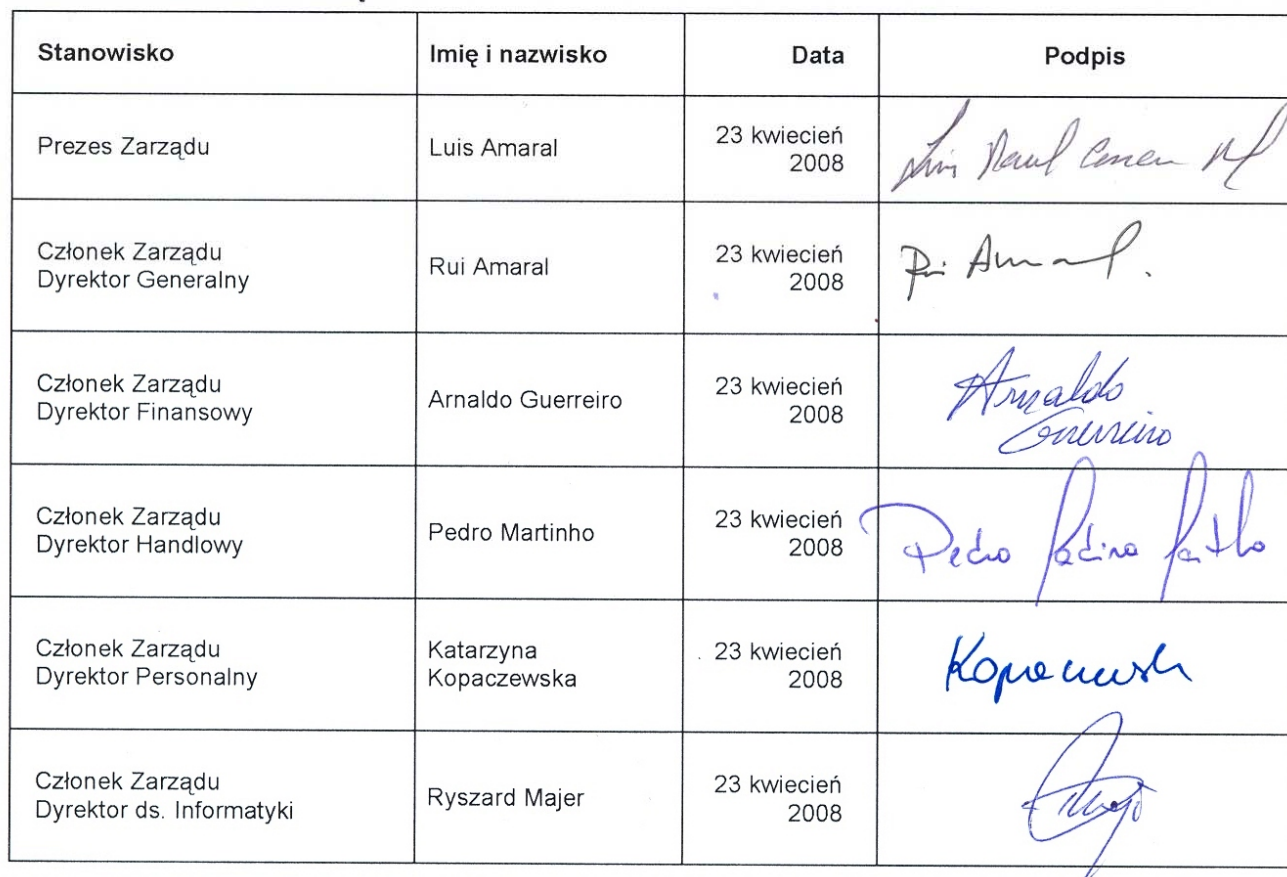 Stanowisko Imię i nazwisko Data Podpis
Prezes Zarządu Luis Amaral 23 kwiecień
2008
Członek Zarządu
Dyrektor Generalny Rui Amaral 23 kwiecień
2008 Rui Amaral.
Członek Zarządu
Dyrektor Finansowy Arnaldo Guerreiro 23 kwiecień
2008 Arnaldo
Guerreiro
Członek Zarządu
Dyrektor Handlowy Pedro Martinho 23 kwiecień
2008 Pedro
Członek Zarządu
Dyrektor Personalny Katarzyna
Kopaczewska 23 kwiecień
2008
Członek Zarządu
Dyrektor ds. Informatyki Ryszard Majer 23 kwiecień
2008